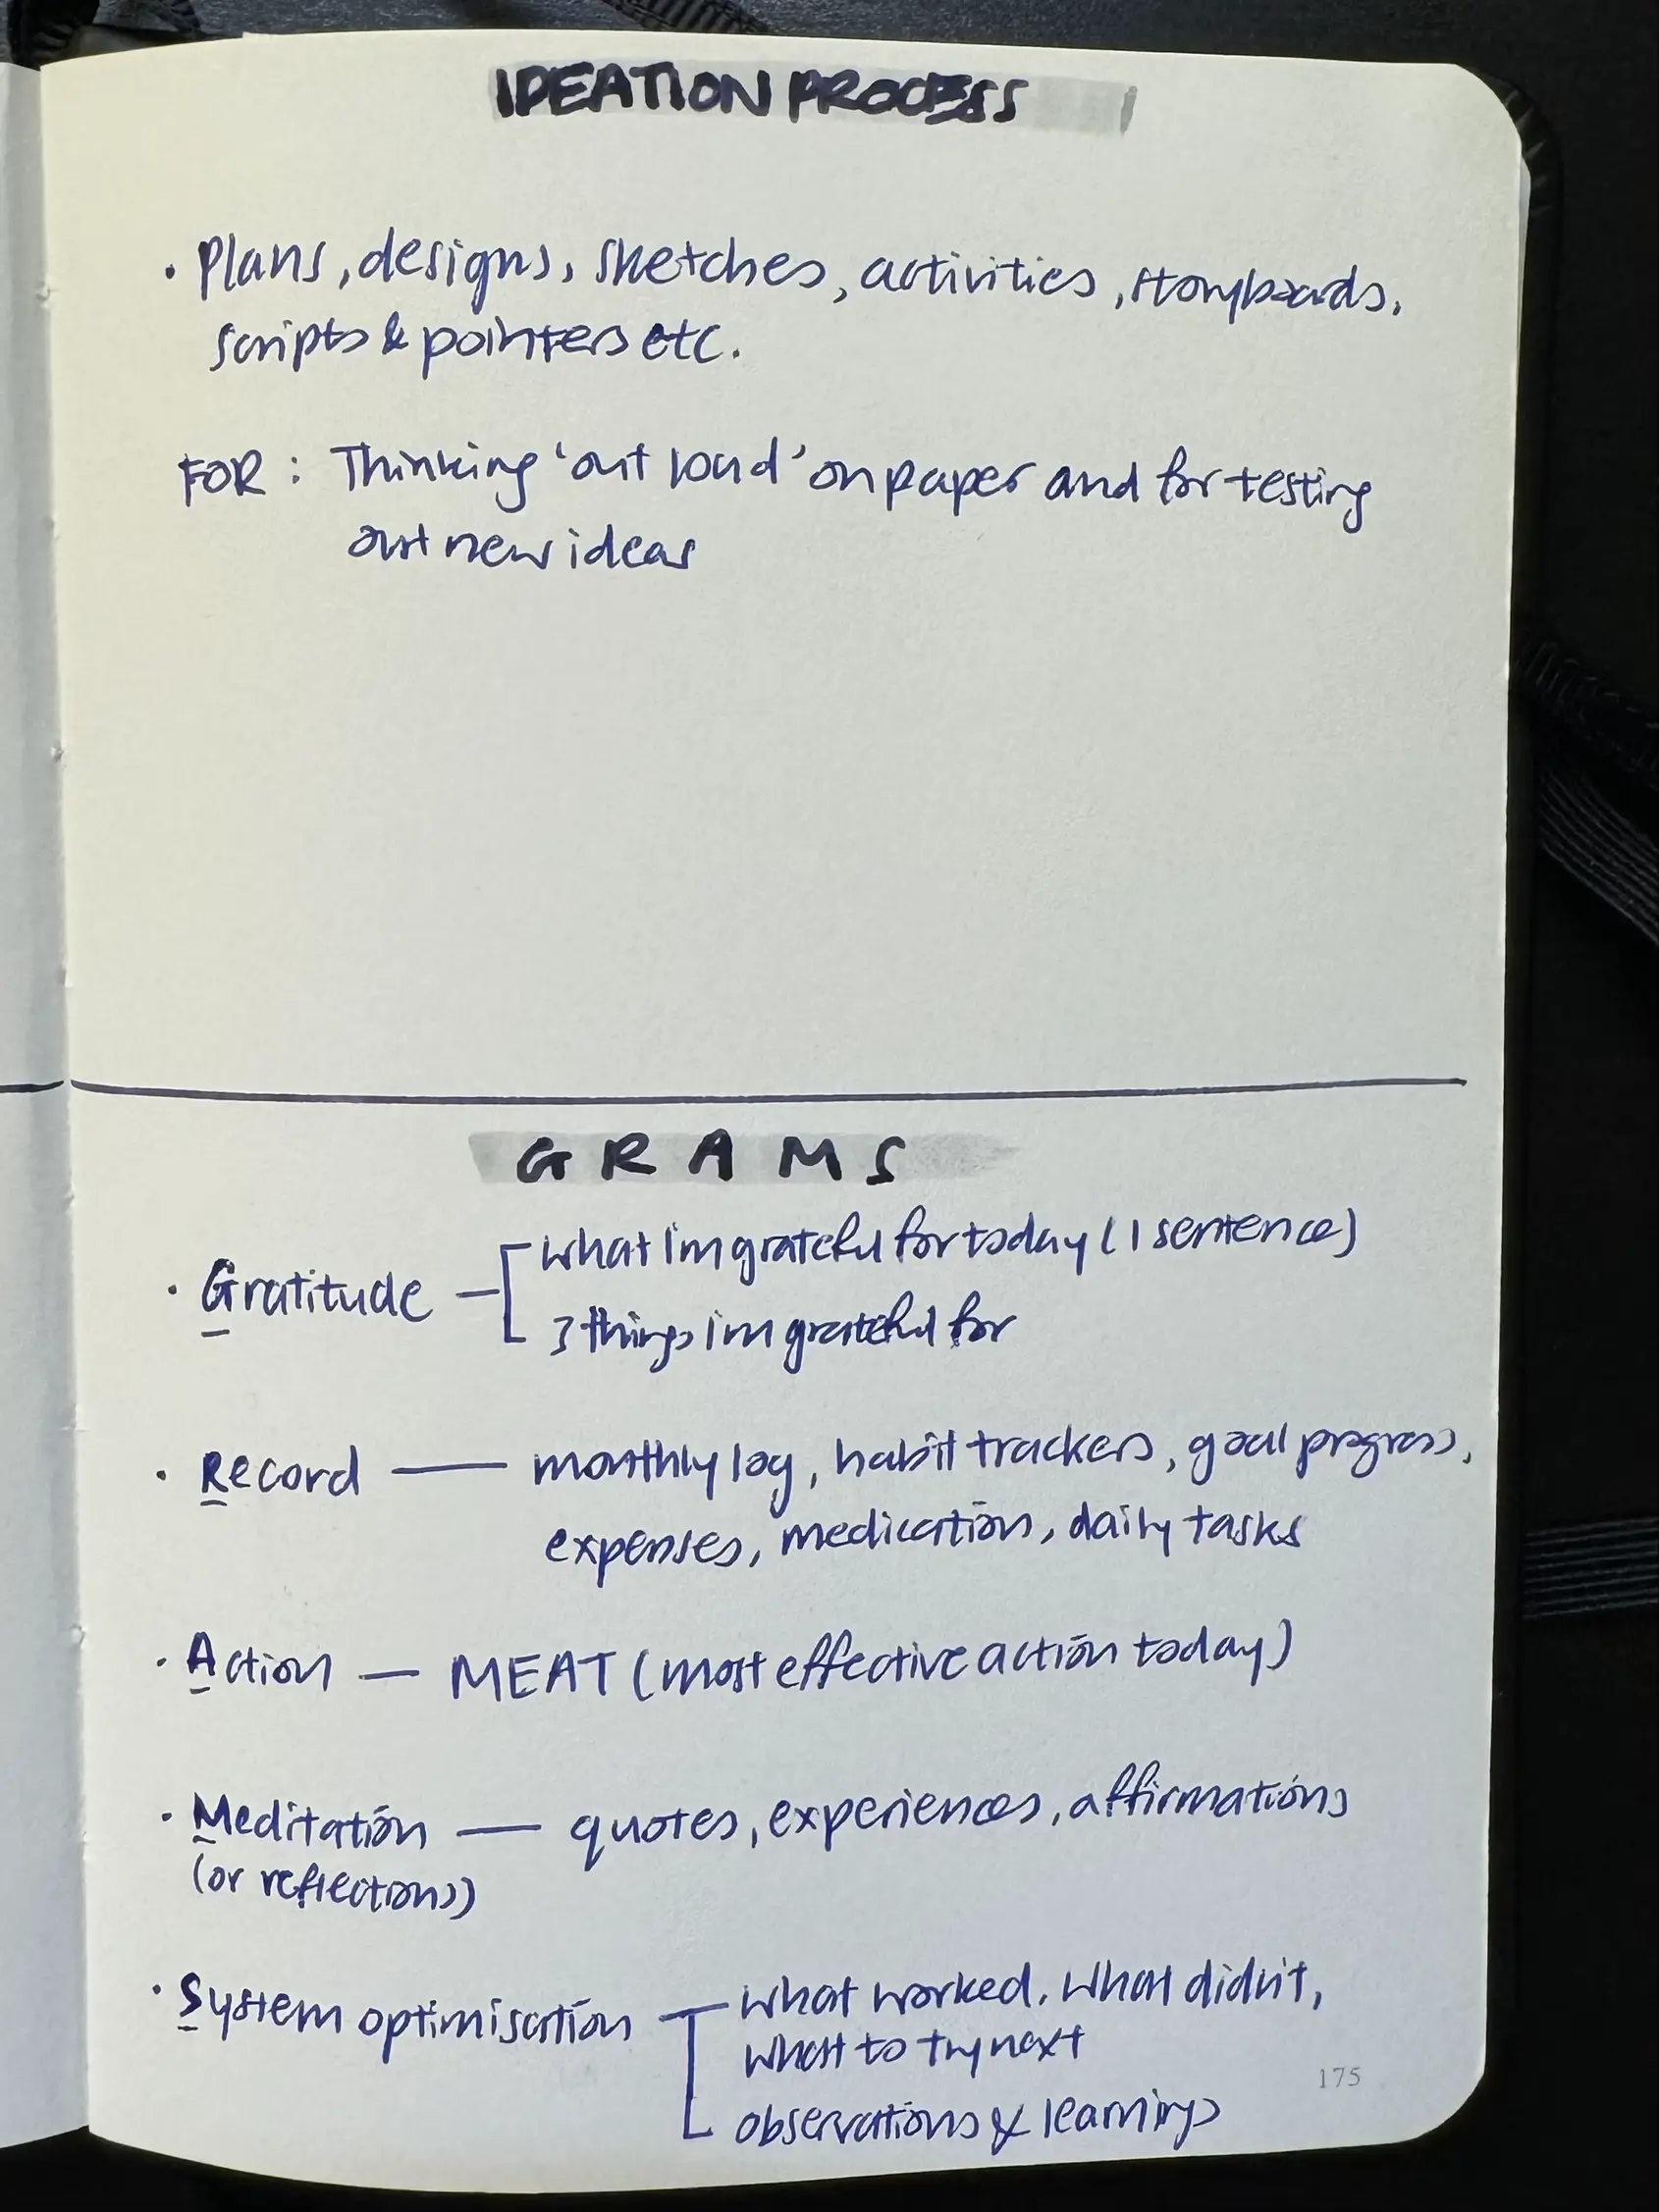 IDEATION PROCESS
• Plans, designs, sketches, activities, storyboards,
scripts & pointers etc.
FOR : Thinking 'out loud' on paper and for testing
out new ideas
G R A M S
• Gratitude — what I'm grateful for today (1 sentence)
3 things I'm grateful for
• Record — monthly log, habit trackers, goal progress,
expenses, medication, daily tasks
• Action — MEAT (most effective action today)
• Meditation — quotes, experiences, affirmations
(or reflections)
• System optimisation — what worked, what didn't,
what to try next
observations & learnings
175